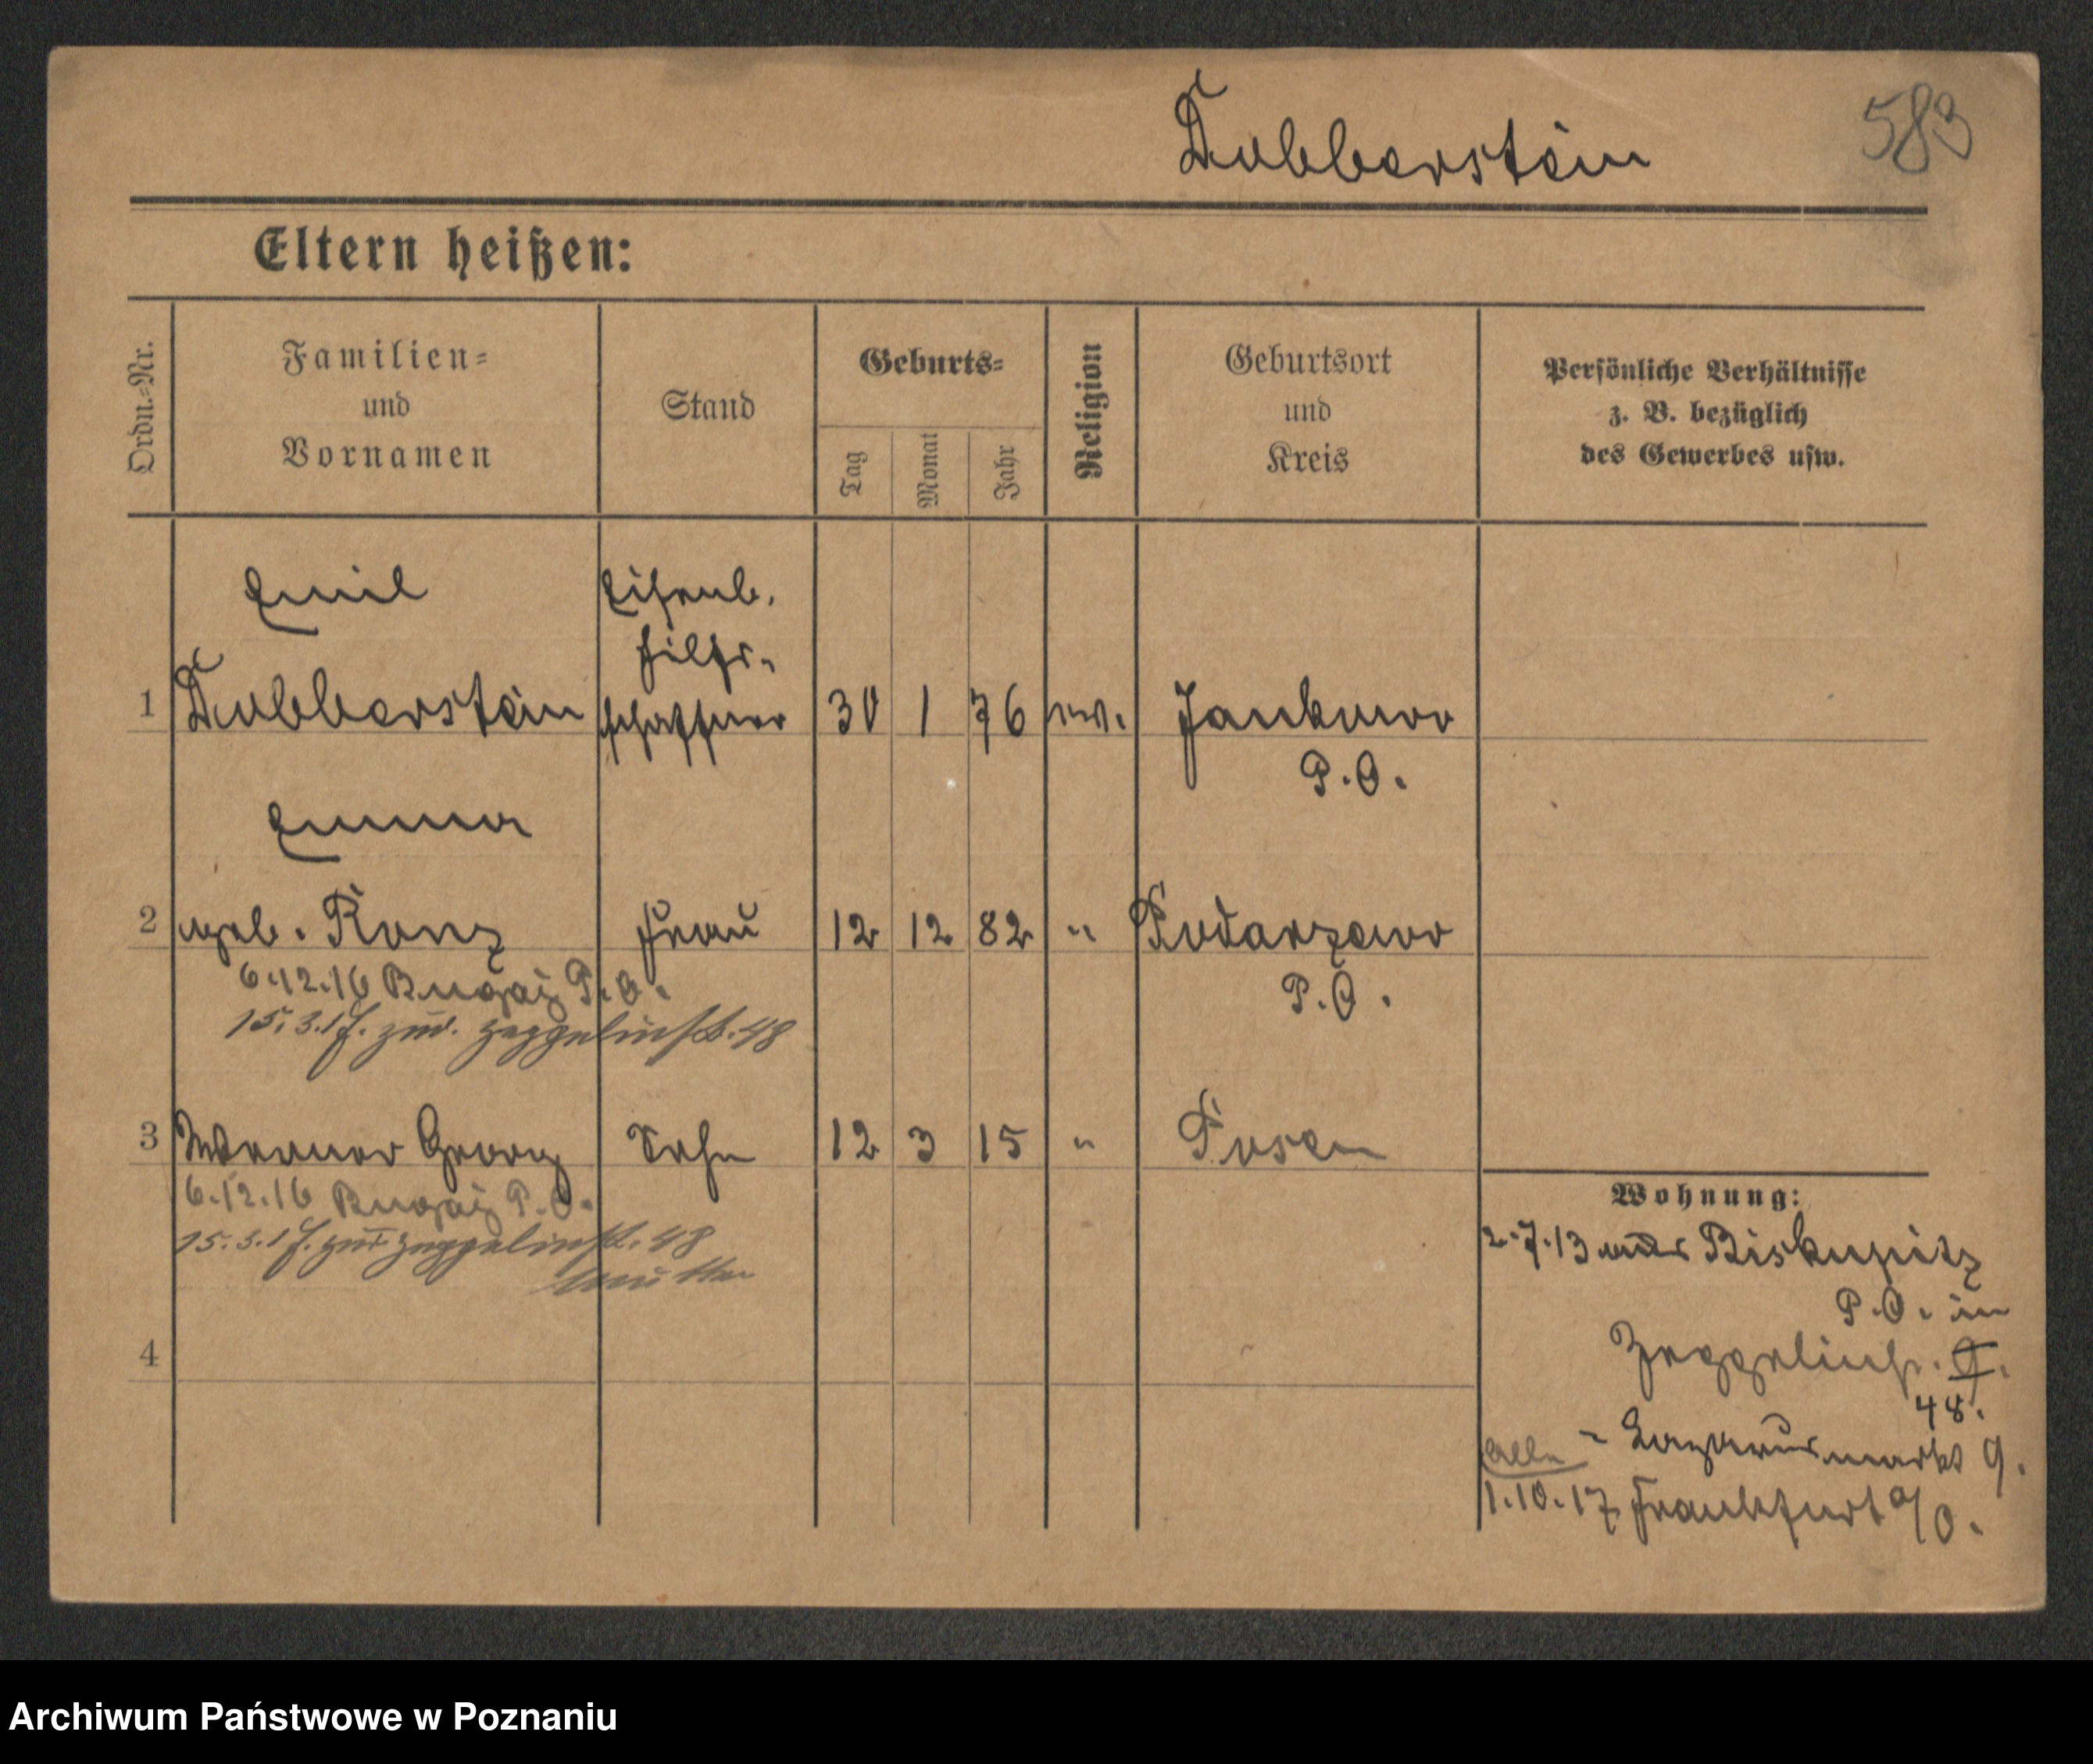 583
Dubberstein
Eltern heißen:
Ordn.=Nr.
Familien=
und
Vornamen
Stand
Geburts=
Tag
Monat
Jahr
Religion
Geburtsort
und
Kreis
Persönliche Verhältnisse
z. B. bezüglich
des Gewerbes usw.
Emil
Eisenb.
Hilfs-
1 Dubberstein schaffner 30 1 76 ev. Jankowo
P.O.
Emma
2 geb. Konz Frau 12 12 82 " Pudarzewo
P.O.
6.12.16 Bugaj P.O.
15.3.17. zur. Zeppelinstr. 48
3 Werner Georg Sohn 12 3 15 " Posen
6.12.16 Bugaj P.O.
15.3.17. zur Zeppelinstr. 48
Mutter
4
Wohnung:
2.7.13 aus Biskupitz
P.O. in
Zeppelinstr.
48.
alle - Lazarusmarkt 9.
1.10.17 Frankfurt a/O.
Archiwum Państwowe w Poznaniu